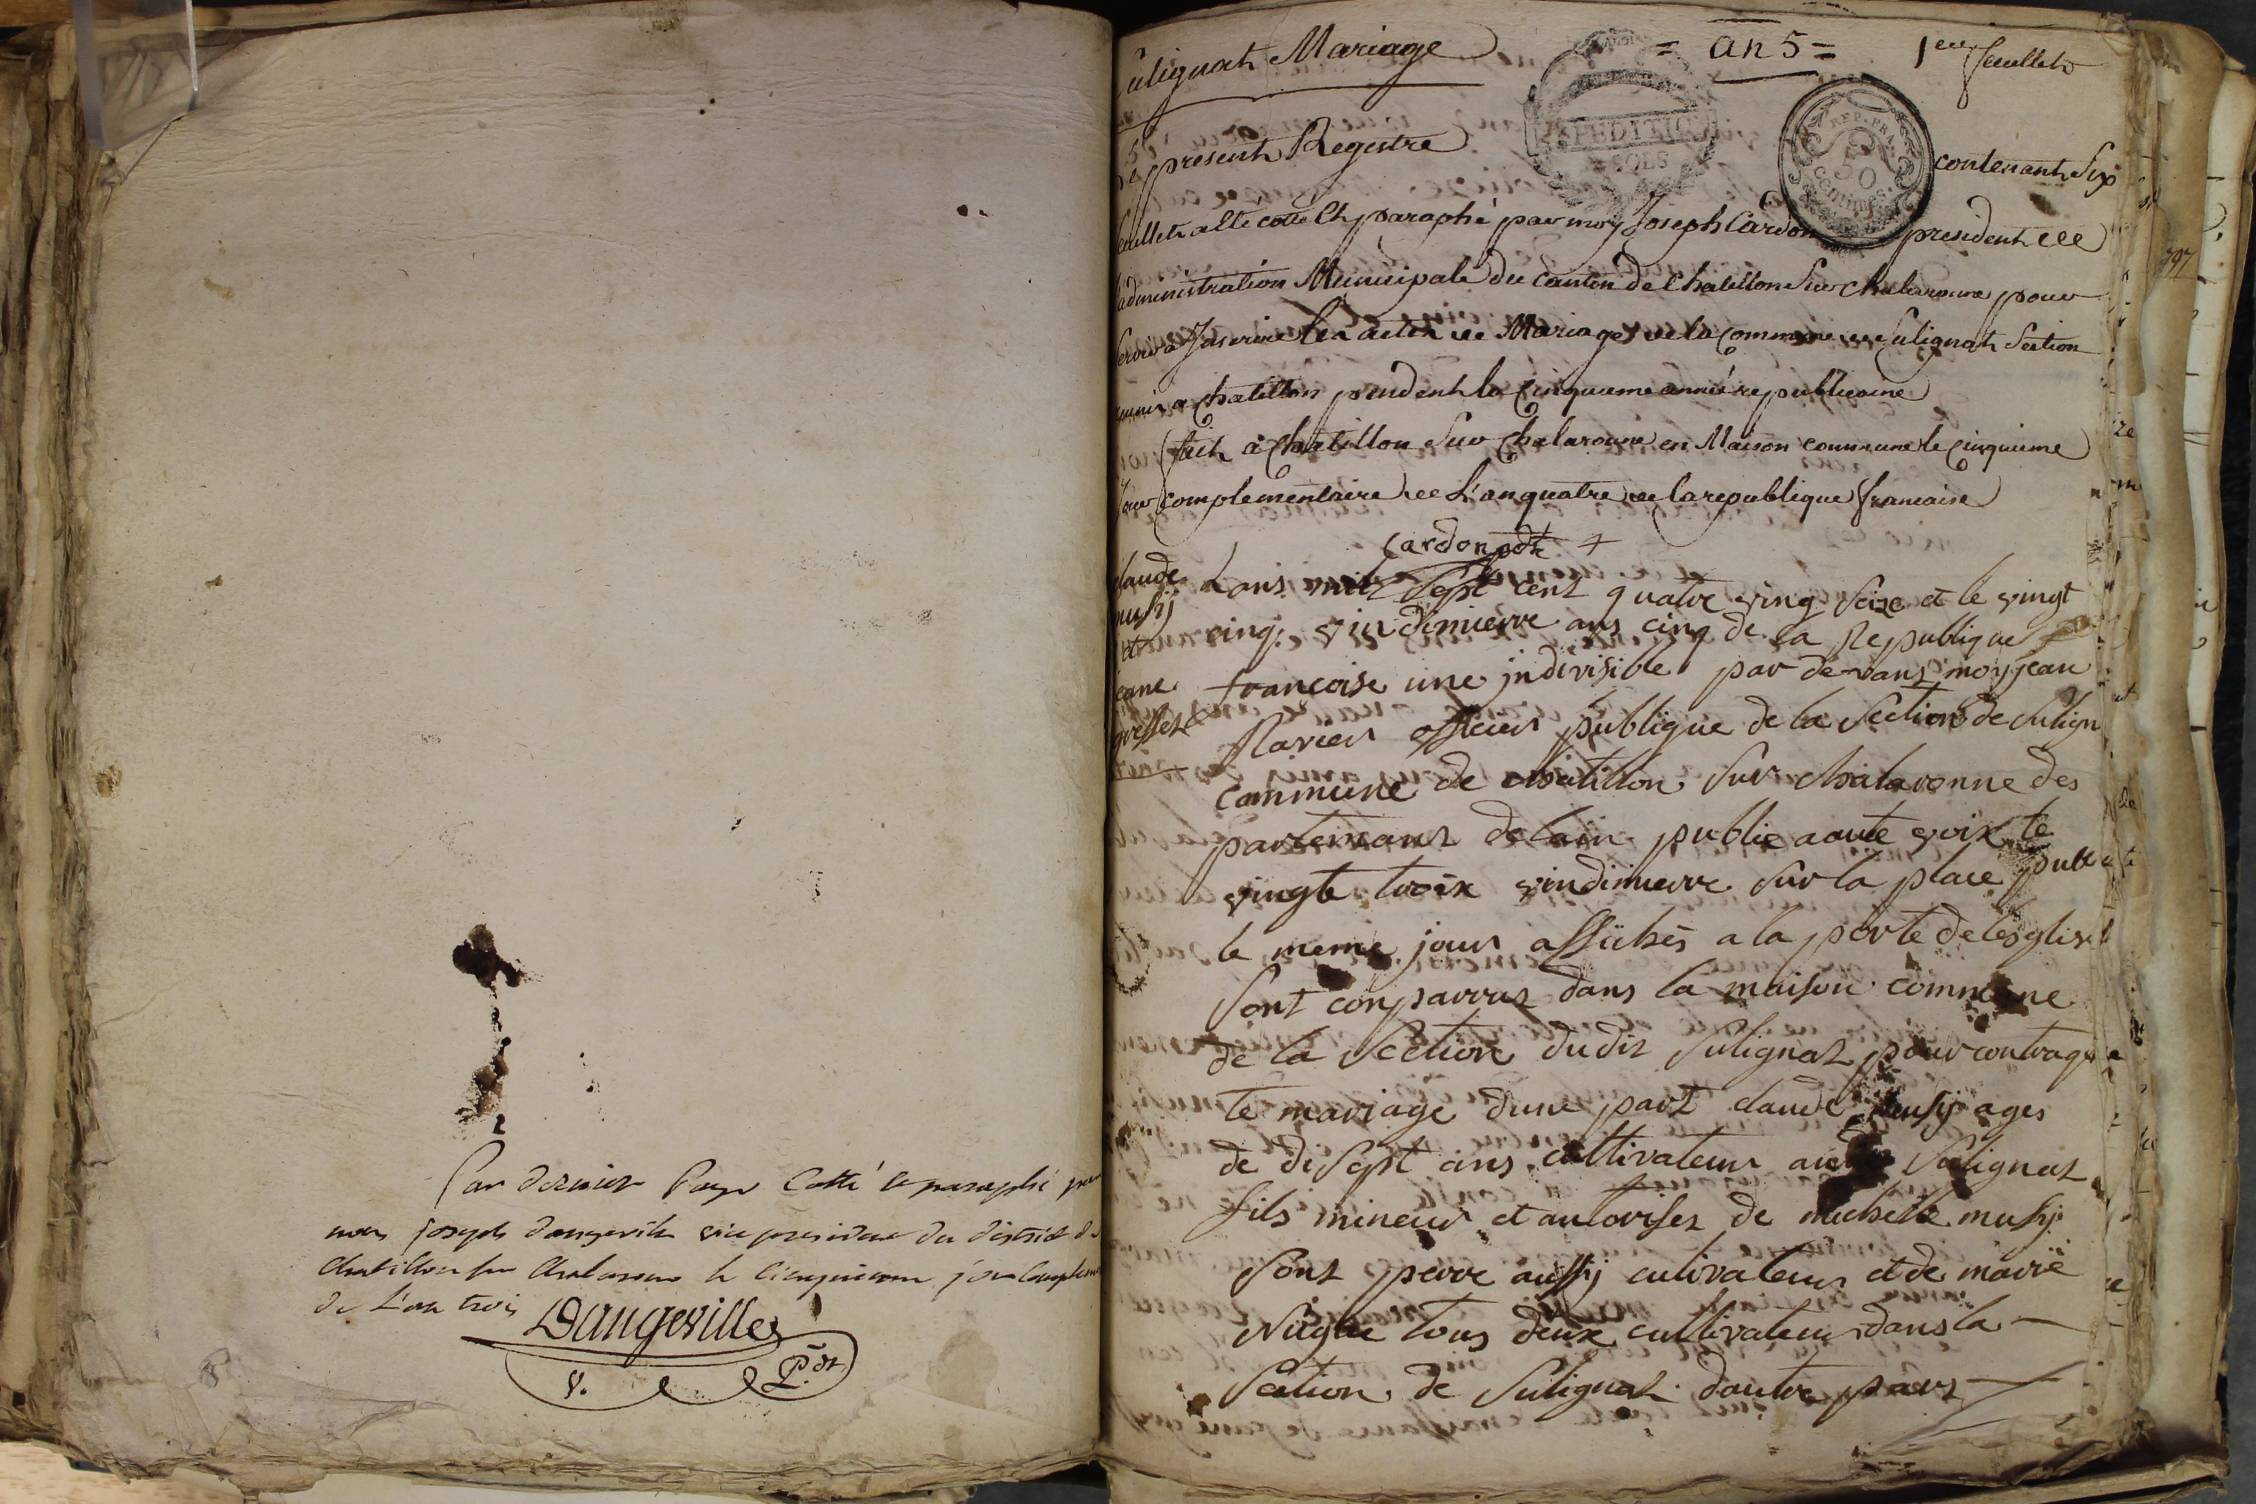 Par dernier Page Cotté et paraphé par
nous joseph dangeville vice president du district de
Chatillon sur Chalaronne le Cinquieme jour Complem
de L'an trois
Dangeville
V. P.dt
Sulignat Mariage
= an 5 =
1er feuillet
EXPEDITIO
SOLS
REP. FRA
50
CENTIMES
797
present Registre contenant Six
feuillets a été cotté Et paraphé par moy Joseph Cardon president de
L'administration Municipale du Canton de Chatillon Sur Chalaronne pour
servir a Inscrire les actes de Mariages de la Commune de Sulignat Section
reunie a Chatillon pendent la Cinquieme année republicaine
fait à Chatillon Sur Chalaronne en Maison commune le Cinquieme
Jour Complementaire de L'an quatre de la republique francaise
Cardon pdt
claude
musy
et
jeane
Lans mil Sept cent quatre ving Seize et le vingt
cinq vindimierre ans cinq de la Republique
francoise une jndivisible par devans moy jean
officier publique de la Section de Sulign
commune de chatillon Sur chalaronne des
partemans de lain publie aaute voix le
vingte troix vindimierre Sur la place publi
le meme jour affichés a la porte de lesglise
Sont conparrus dans la maison commune
de la Section dudit Sulignat pour contraque
te mariage dune part claude musy ages
de diSept ans cultivateur au Sulignat
fils mineur et autorises de michelle musy
Sont perre aussy cultivateur et de marie
tous deux cultivateur dans la
Section de Sulignat dautre part